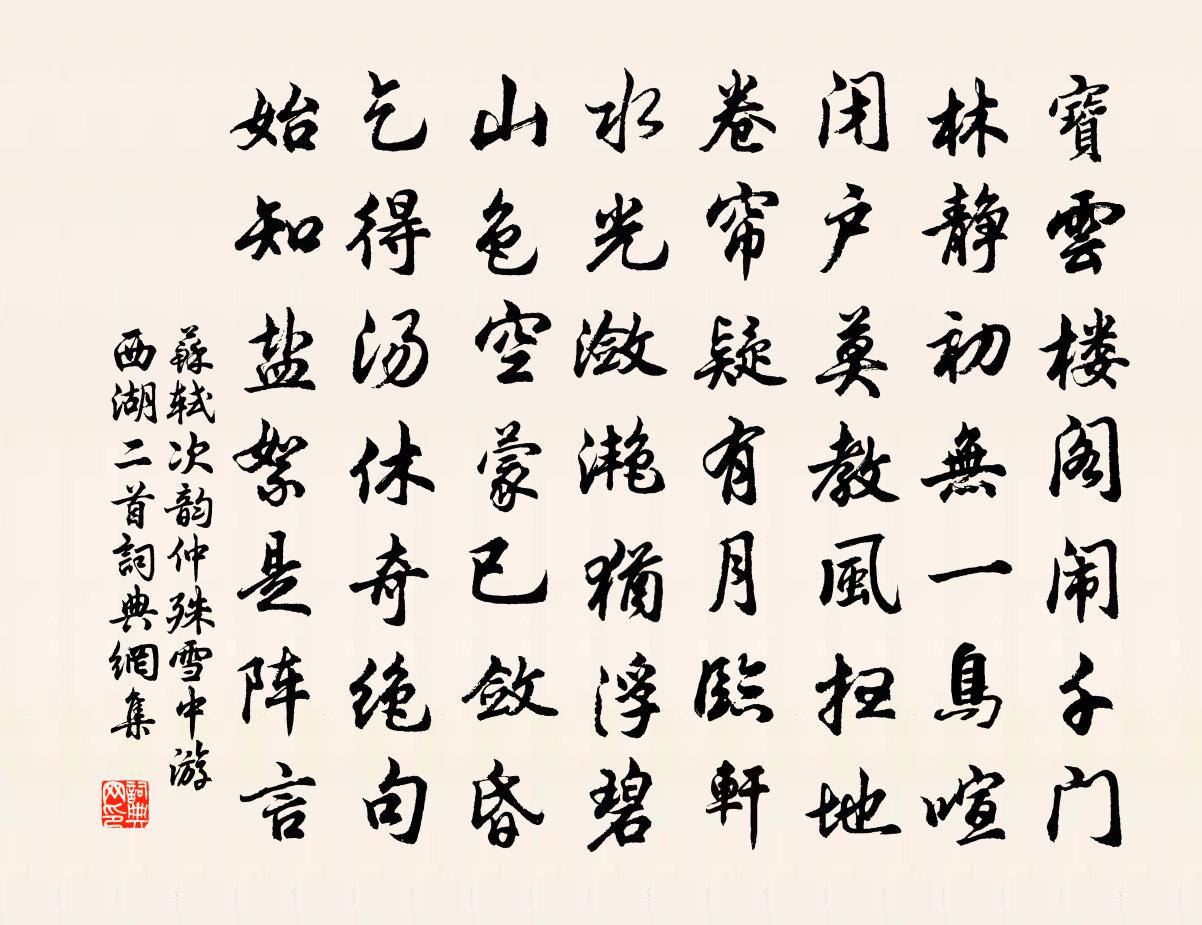 寶雲楼阁闹千门
林静初無一鳥喧
闭户莫教風扫地
卷帘疑有月臨軒
水光潋滟猶浮碧
山色空蒙已敛昏
乞得汤休奇绝句
始知盐絮是阵言
蘇轼次韵仲殊雪中游
西湖二首詞典網集
詞典网印